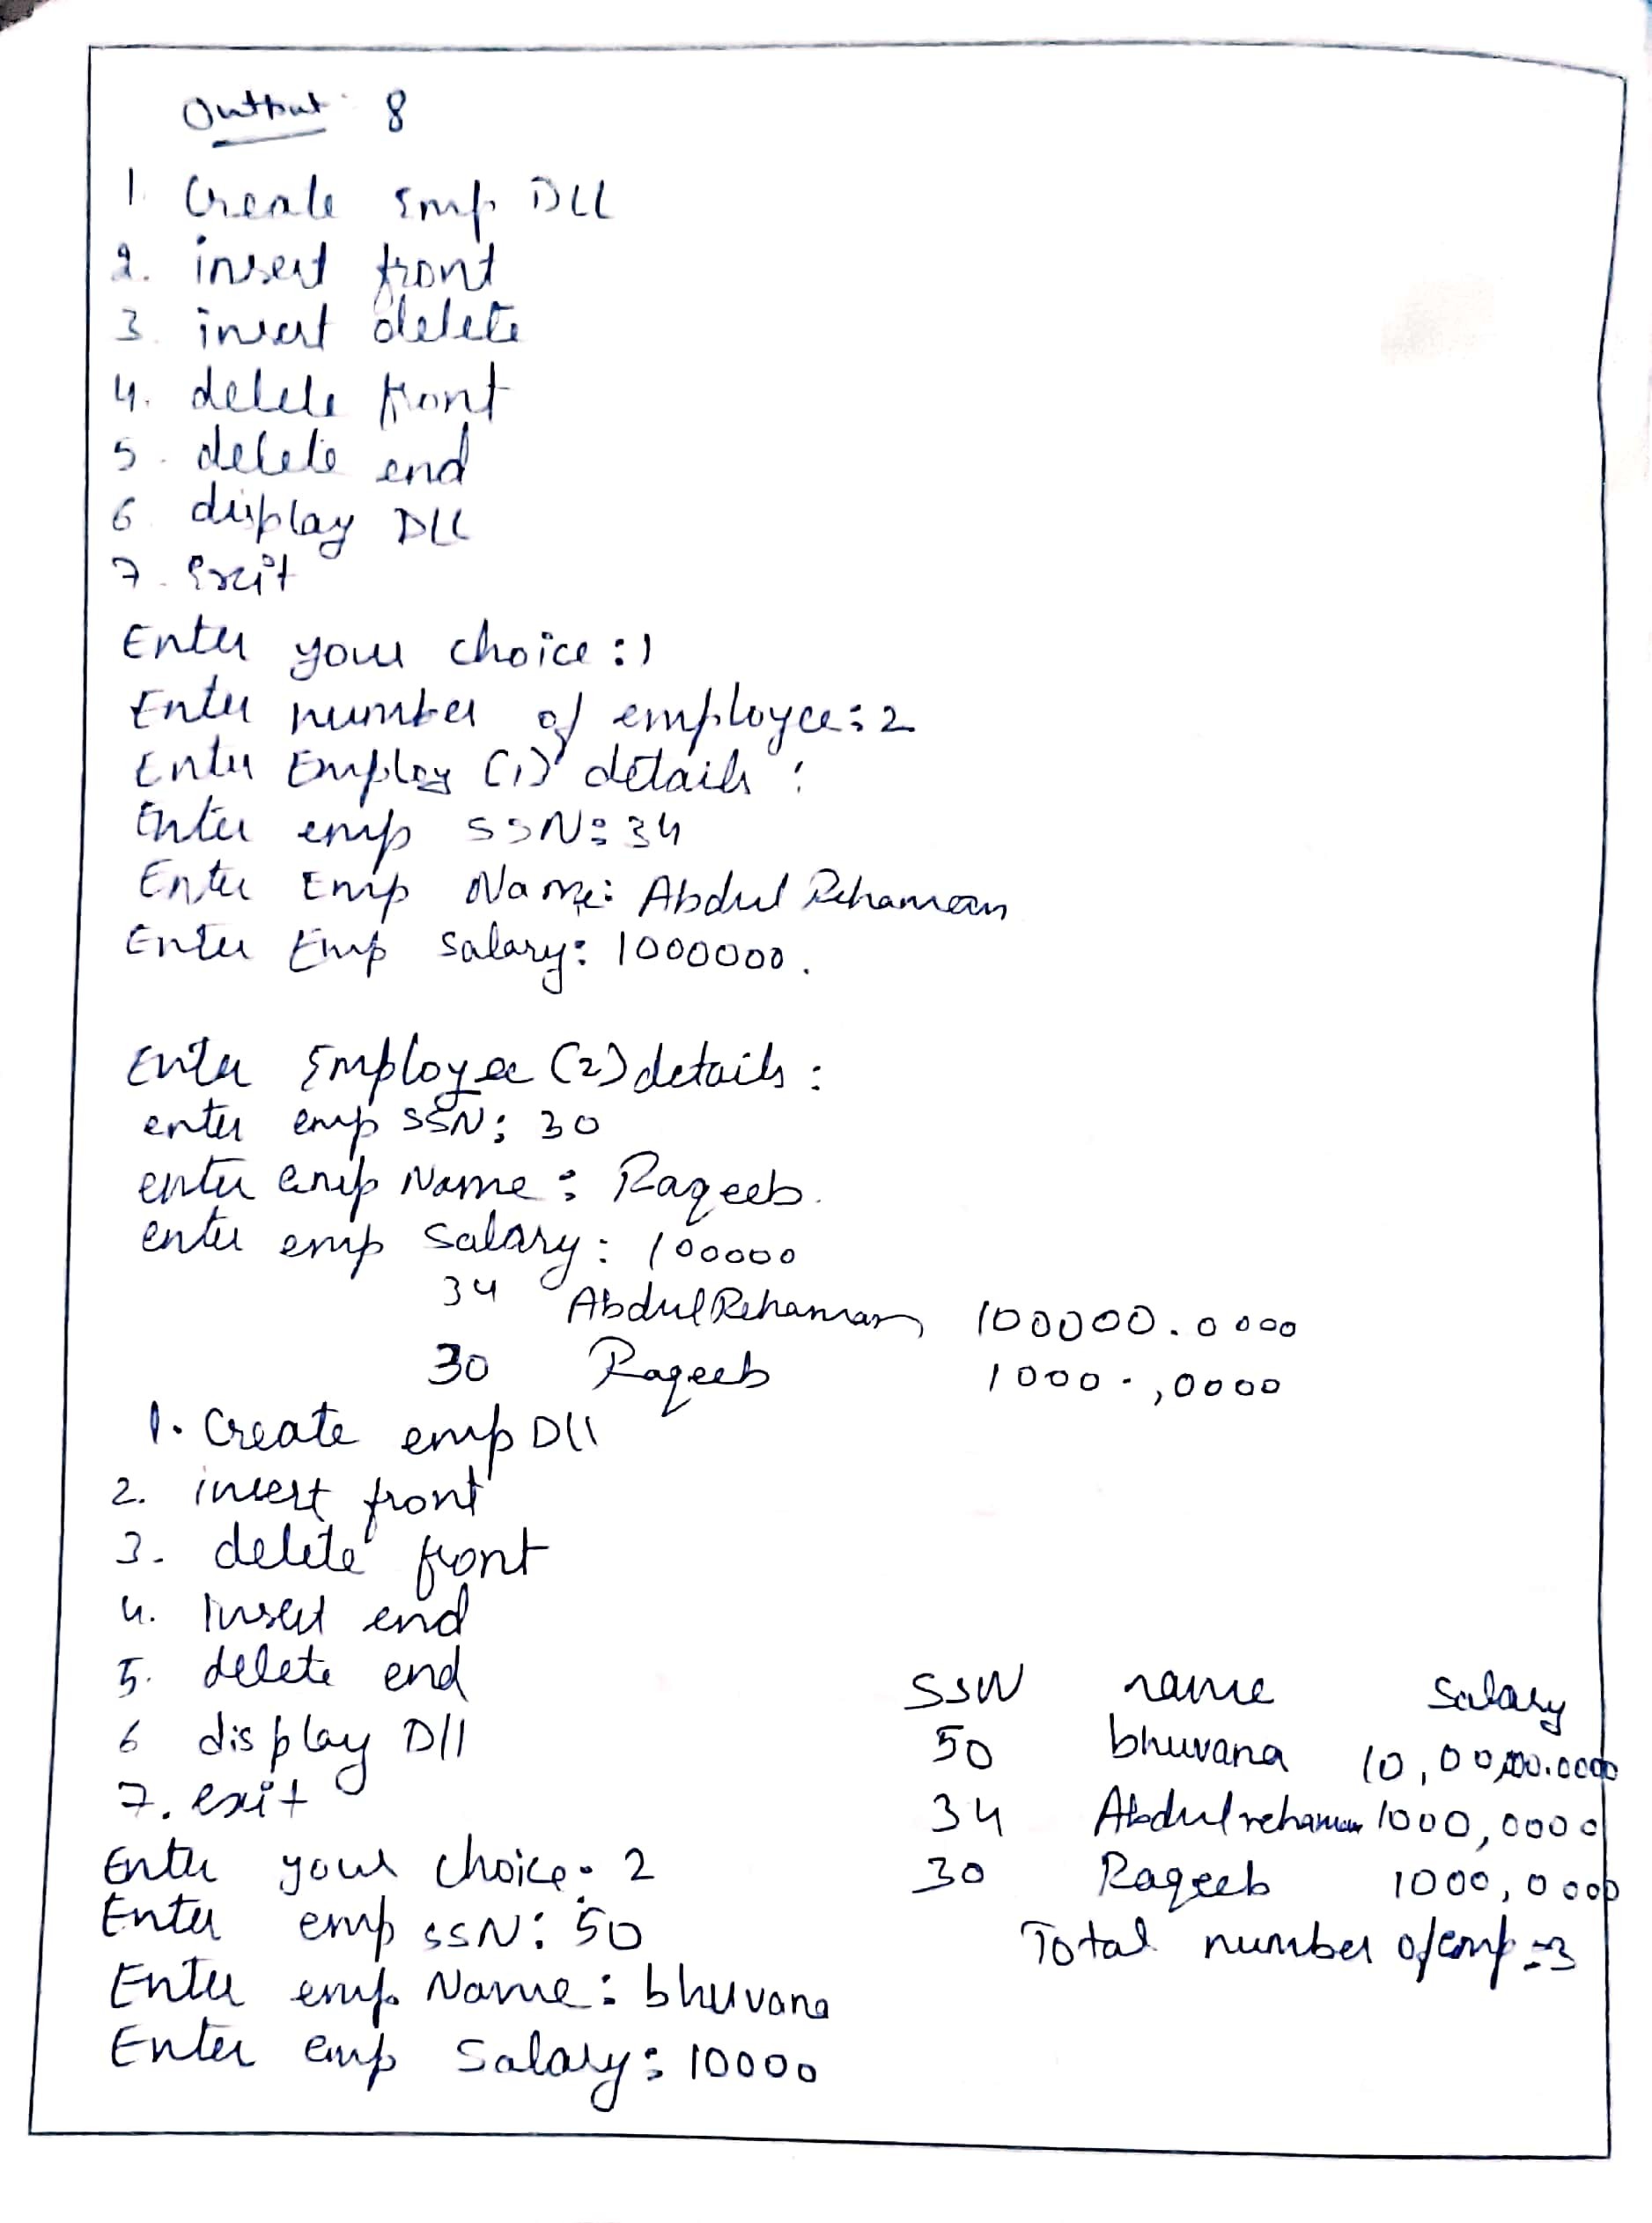 Output: 8
1. Create Emp DLL
2. insert front
3. insert delete
4. delete front
5. delete end
6 display DLL
7. Exit
Enter your choice :1
Enter number of employee: 2
Enter Employ (1) details :
Enter emp SSN: 34
Enter Emp Name: Abdul Rehaman
Enter Emp salary: 1000000.
Enter Employee (2) details :
enter emp SSN: 30
enter emp Name : Raqeeb.
enter emp salary : 100000
34 AbdulRehaman 100000.0000
30 Raqeeb 1000.,0000
1. Create emp Dll
2. insert front
3. delete front
4. Insert end
5. delete end
6 display Dll
7. exit
Enter your choice: 2
Enter emp SSN: 50
Enter emp. Name : bhuvana
Enter emp Salary: 10000
SSN name Salary
50 bhuvana 10,00,000.0000
34 Abdulrehaman 1000,0000
30 Raqeeb 1000,0000
Total number of emp =3